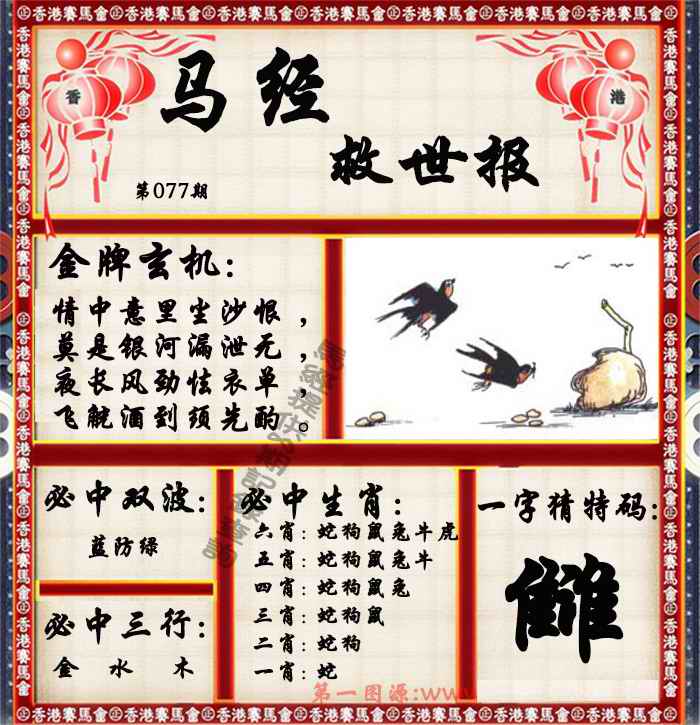 香港賽馬會
香
港
马经
救世报
第077期
金牌玄机:
情中意里尘沙恨，
莫是银河漏泄无，
夜长风劲怯衣单，
飞觥酒到须先酌。
必中双波:
蓝防绿
必中三行:
金 水 木
必中生肖:
六肖: 蛇狗鼠兔牛虎
五肖: 蛇狗鼠兔牛
四肖: 蛇狗鼠兔
三肖: 蛇狗鼠
二肖: 蛇狗
一肖: 蛇
一字猜特码:
第一图源:www